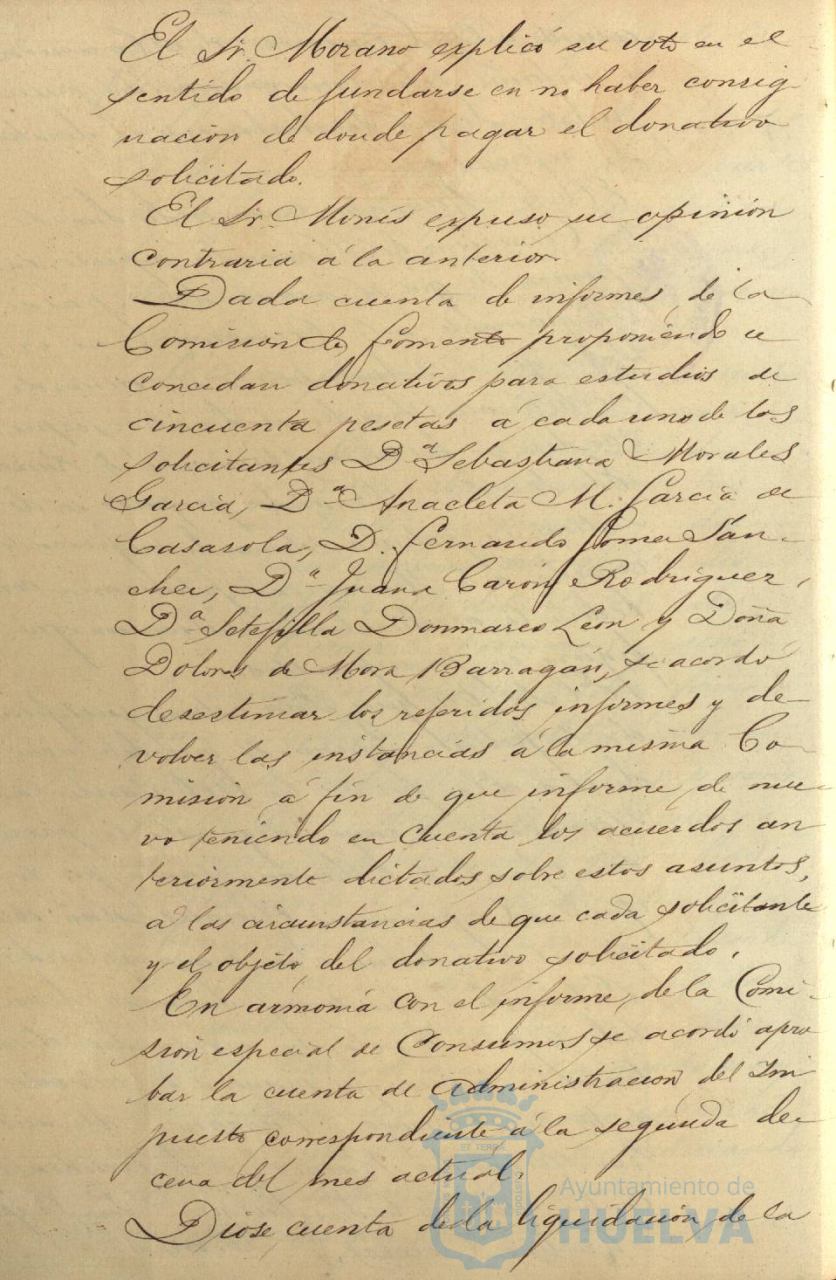 El Sr. Morano explicó su voto en el
sentido de fundarse en no haber consig
nación de donde pagar el donativo
solicitado.
El Sr. Monís expuso su opinión
contraria á la anterior.
Dada cuenta de informes de la
Comisión de Fomento proponiendo se
concedan donativos para estudios de
cincuenta pesetas á cada uno de los
solicitantes D.ª Sebastiana Morales
García, D.ª Anacleta M. García de
Casasola, D. Fernando Gomez Sán-
chez, D.ª Juana Carón Rodríguez,
D.ª Setefilla Donmarco León y Doña
Dolores de Mora Barragán, se acordó
desestimar los referidos informes y de
volver las instancias á la misma Co-
misión á fin de que informe de nue-
vo teniendo en cuenta los acuerdos an
teriormente dictados sobre estos asuntos,
á las circunstancias de que cada solicitante
y el objeto del donativo solicitado.
En armonía con el informe de la Comi-
sión especial de Consumos se acordó apro
bar la cuenta de administración del Im
puesto correspondiente á la segunda de-
cena del mes actual.
Diose cuenta de la liquidación de la
Ayuntamiento de
HUELVA